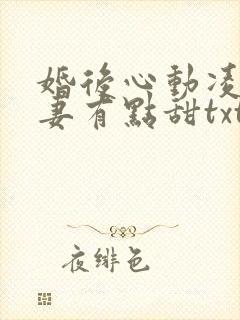 婚後心動凌
妻有點甜txt
夜緋色